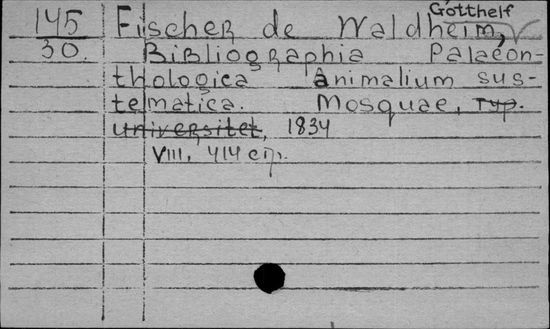 Gotthelf
145 Fischer de Waldheim, V
30. Bibliographia Palaeon-
thologica animalium sus-
tematica. Mosquae, Typ.
universitet, 1834
VIII, 414 стр.